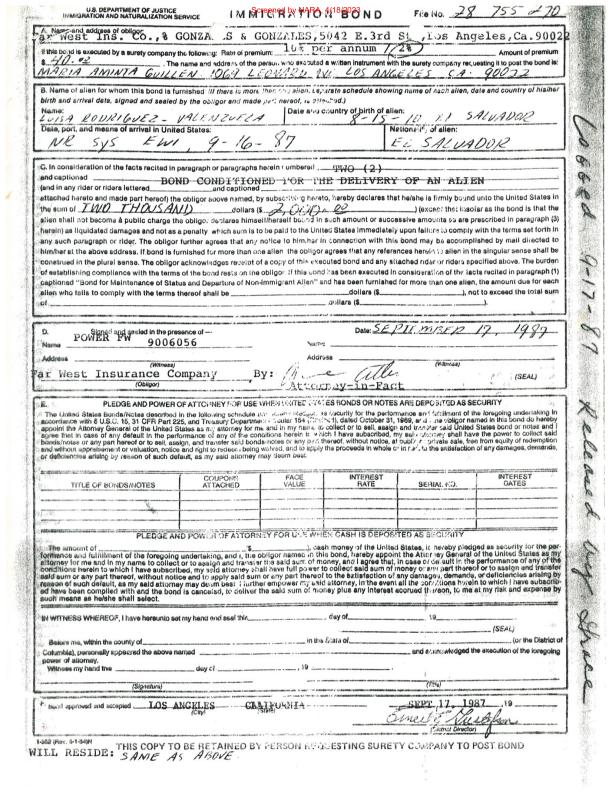 Screened by NARA, 4/18/2023
U.S. DEPARTMENT OF JUSTICE
IMMIGRATION AND NATURALIZATION SERVICE
IMMIGRATION BOND
File No. 28 755 270
A. Name and address of obligor:
Far West Ins. Co., % GONZALES & GONZALES, 5042 E.3rd St, Los Angeles, Ca. 90022
If this bond is executed by a surety company the following: Rate of premium: 10% per annum Amount of premium
$ 40.00 . The name and address of the person who executed a written instrument with the surety company requesting it to post the bond is:
MARIA AMINTA GUILLEN 1069 LEONARD AV. LOS ANGELES CA. 90022
B. Name of alien for whom this bond is furnished (If there is more than one alien, separate schedule showing name of each alien, date and country of his/her
birth and arrival date, signed and sealed by the obligor and made part hereof, is attached.)
Name: Date and country of birth of alien:
LUISA RODRIGUEZ - VALENZUELA 8-15-10 El SALVADOR
Date, port, and means of arrival in United States: Nationality of alien:
NR SYS EWI, 9-16-87 EL SALVADOR
C. In consideration of the facts recited in paragraph or paragraphs herein numbered TWO (2)
and captioned BOND CONDITIONED FOR THE DELIVERY OF AN ALIEN
(and in any rider or riders lettered and captioned
attached hereto and made part hereof) the obligor above named, by subscribing hereto, hereby declares that he/she is firmly bound unto the United States in
the sum of TWO THOUSAND dollars ($ 2,000.00 ) (except that insofar as the bond is that the
alien shall not become a public charge the obligor declares himself/herself bound in such amount or successive amounts as are prescribed in paragraph (3)
herein) as liquidated damages and not as a penalty which sum is to be paid to the United States immediately upon failure to comply with the terms set forth in
any such paragraph or rider. The obligor further agrees that any notice to him/her in connection with this bond may be accomplished by mail directed to
him/her at the above address. If bond is furnished for more than one alien the obligor agrees that any references herein to alien in the singular sense shall be
construed in the plural sense. The obligor acknowledges receipt of a copy of this executed bond and any attached rider or riders specified above. The burden
of establishing compliance with the terms of the bond rests on the obligor. If this bond has been executed in consideration of the facts recited in paragraph (1)
captioned "Bond for Maintenance of Status and Departure of Non-immigrant Alien" and has been furnished for more than one alien, the amount due for each
alien who fails to comply with the terms thereof shall be dollars ($ ), not to exceed the total sum
of dollars ($ ).
D. Signed and sealed in the presence of— Date: SEPTEMBER 17, 1987
Name POWER FW 9006056 Name
Address Address
(Witness) (Witness)
Far West Insurance Company By: (SEAL)
(Obligor) Attorney-in-Fact
E. PLEDGE AND POWER OF ATTORNEY FOR USE WHEN UNITED STATES BONDS OR NOTES ARE DEPOSITED AS SECURITY
The United States Bonds/Notes described in the following schedule are hereby pledged as security for the performance and fulfillment of the foregoing undertaking in
accordance with 6 U.S.C. 15, 31 CFR Part 225, and Treasury Department Circular 154 dated October 31, 1969, and I, the obligor named in this bond do hereby
appoint the Attorney General of the United States as my attorney for me and in my name to collect or to sell, assign and transfer said United States bond or notes and I
agree that in case of any default in the performance of any of the conditions herein to which I have subscribed, my said attorney shall have the power to collect said
bonds/notes or any part hereof or to sell, assign, and transfer said bonds/notes or any part thereof, without notice, at public or private sale, free from equity of redemption
and without appraisement or valuation, notice and right to redeem being waived, and to apply the proceeds in whole or in part to the satisfaction of any damages, demands,
or deficiencies arising by reason of such default, as my said attorney may deem best.
TITLE OF BONDS/NOTES COUPONS ATTACHED FACE VALUE INTEREST RATE SERIAL NO. INTEREST DATES
PLEDGE AND POWER OF ATTORNEY FOR USE WHEN CASH IS DEPOSITED AS SECURITY
The amount of $ , cash money of the United States, is hereby pledged as security for the per-
formance and fulfillment of the foregoing undertaking, and I, the obligor named in this bond, hereby appoint the Attorney General of the United States as my
attorney for me and in my name to collect or to assign and transfer the said sum of money, and I agree that, in case of default in the performance of any of the
conditions herein to which I have subscribed, my said attorney shall have full power to collect said sum of money or any part thereof or to assign and transfer
said sum or any part thereof, without notice and to apply said sum or any part thereof to the satisfaction of any damages, demands, or deficiencies arising by
reason of such default, as my said attorney may deem best. I further empower my said attorney, in the event all the conditions herein to which I have subscrib-
ed have been complied with and the bond is canceled, to deliver the said sum of money plus any interest accrued thereon, to me at my risk and expense by
such means as he/she shall select.
IN WITNESS WHEREOF, I have hereunto set my hand and seal this day of , 19
(SEAL)
Before me, within the county of in the State of (or the District of
Columbia), personally appeared the above named and acknowledged the execution of the foregoing
power of attorney.
Witness my hand the day of , 19 .
(Signature) (Title)
F. Bond approved and accepted LOS ANGELES CALIFORNIA SEPT 17, 1987 19
(City) (State)
(District Director)
I-352 (Rev. 5-1-84)N
THIS COPY TO BE RETAINED BY PERSON REQUESTING SURETY COMPANY TO POST BOND
WILL RESIDE: SAME AS ABOVE
9-17-87 Released